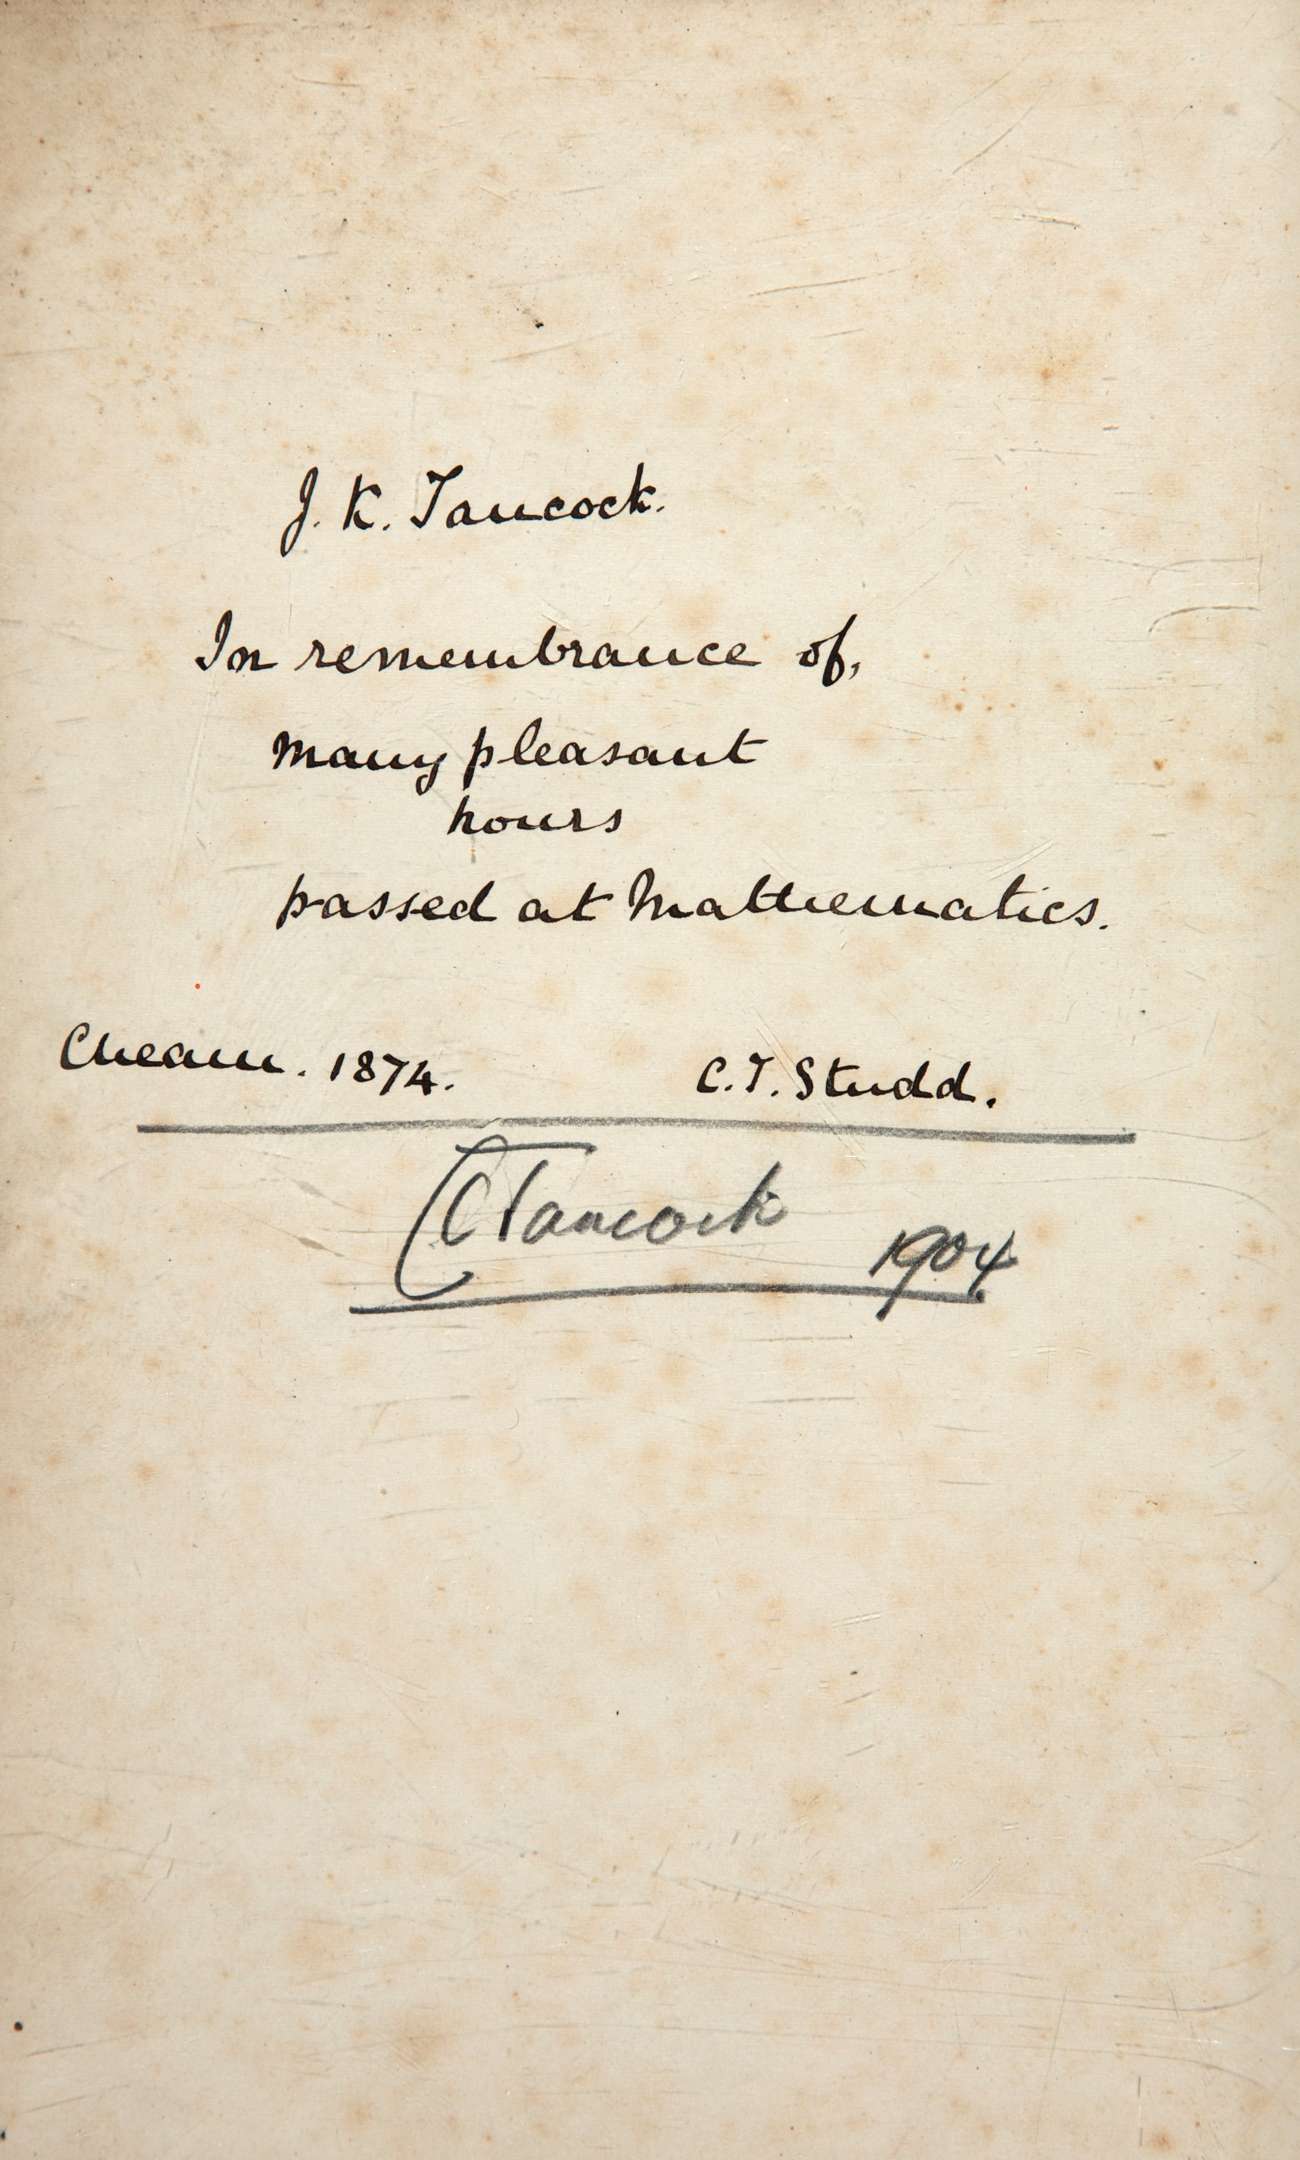 J. K. Tancock.
In remembrance of,
many pleasant
hours
passed at Mathematics.
Cheam. 1874. C. T. Studd.
C Tancock
1904